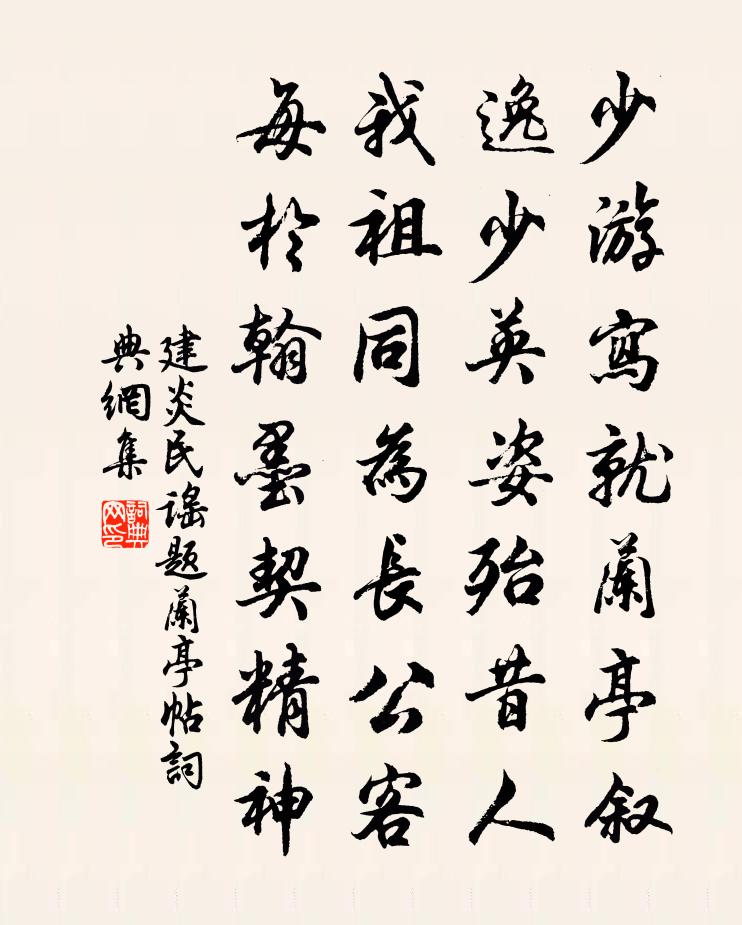 少游寫就蘭亭叙
逸少英姿殆昔人
我祖同為長公客
每於翰墨契精神
建炎民謡题蘭亭帖詞
典網集
詞典网印